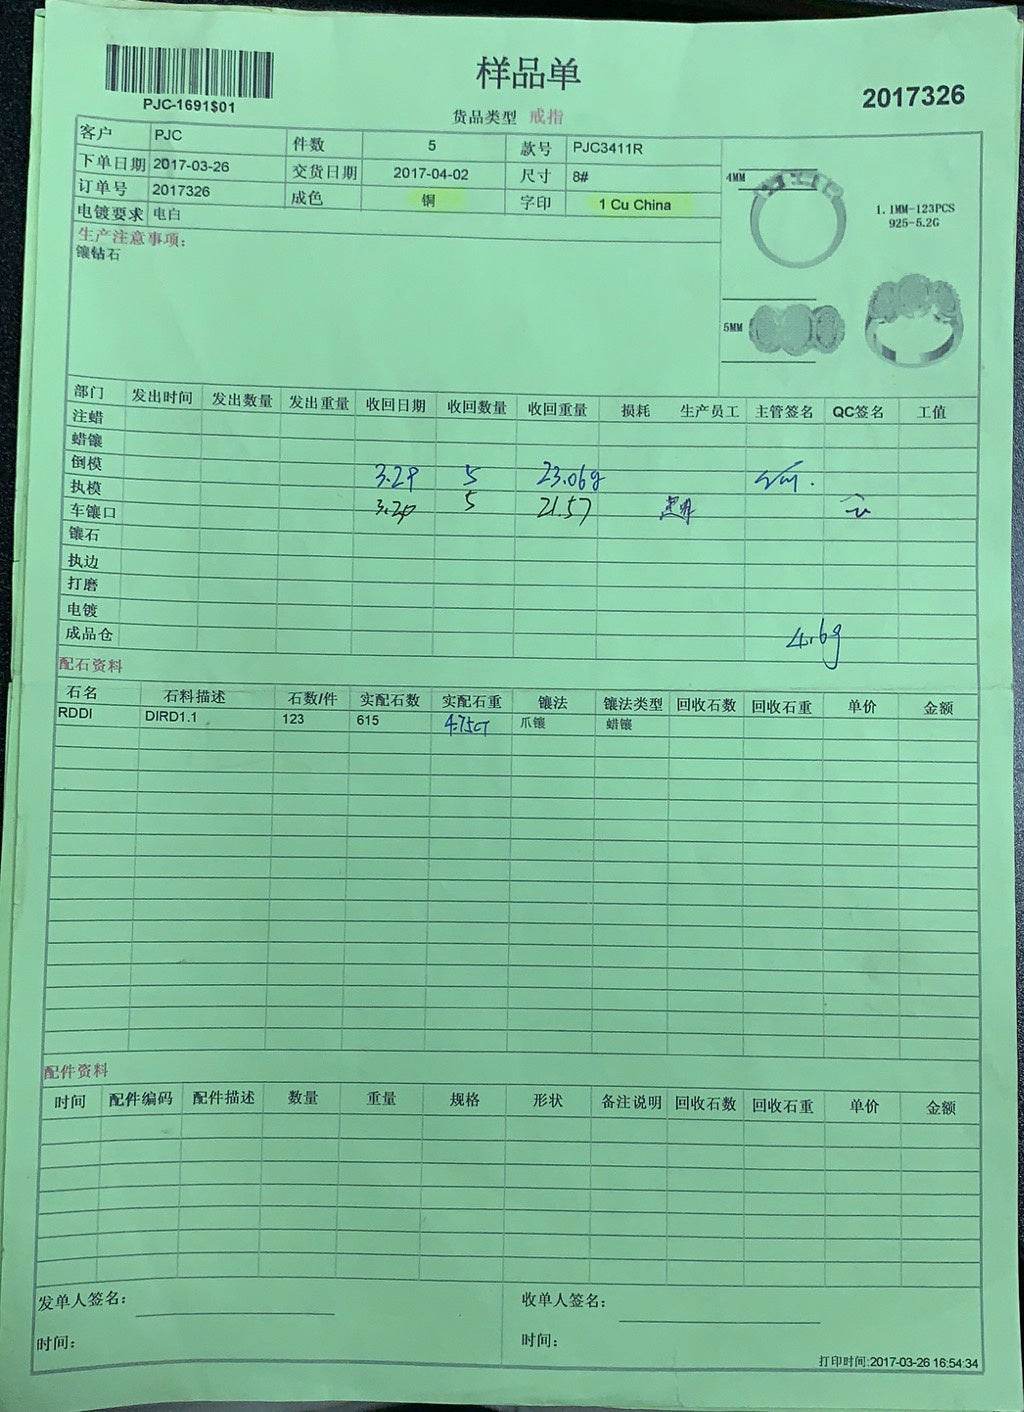 样品单
PJC-1691$01
2017326
货品类型 戒指
客户 PJC 件数 5 款号 PJC3411R
下单日期 2017-03-26 交货日期 2017-04-02 尺寸 8#
订单号 2017326 成色 铜 字印 1 Cu China
电镀要求 电白
生产注意事项:
镶钻石
4MM
1.1MM-123PCS
925-5.2G
5MM
部门 发出时间 发出数量 发出重量 收回日期 收回数量 收回重量 损耗 生产员工 主管签名 QC签名 工值
注蜡
蜡镶
倒模 3.29 5 23.06g
执模 3.29 5 21.57
车镶口
镶石
执边
打磨
电镀
成品仓 4.6g
配石资料
石名 石料描述 石数/件 实配石数 实配石重 镶法 镶法类型 回收石数 回收石重 单价 金额
RDDI DIRD1.1 123 615 4.75CT 爪镶 蜡镶
配件资料
时间 配件编码 配件描述 数量 重量 规格 形状 备注说明 回收石数 回收石重 单价 金额
发单人签名: 收单人签名:
时间: 时间:
打印时间:2017-03-26 16:54:34